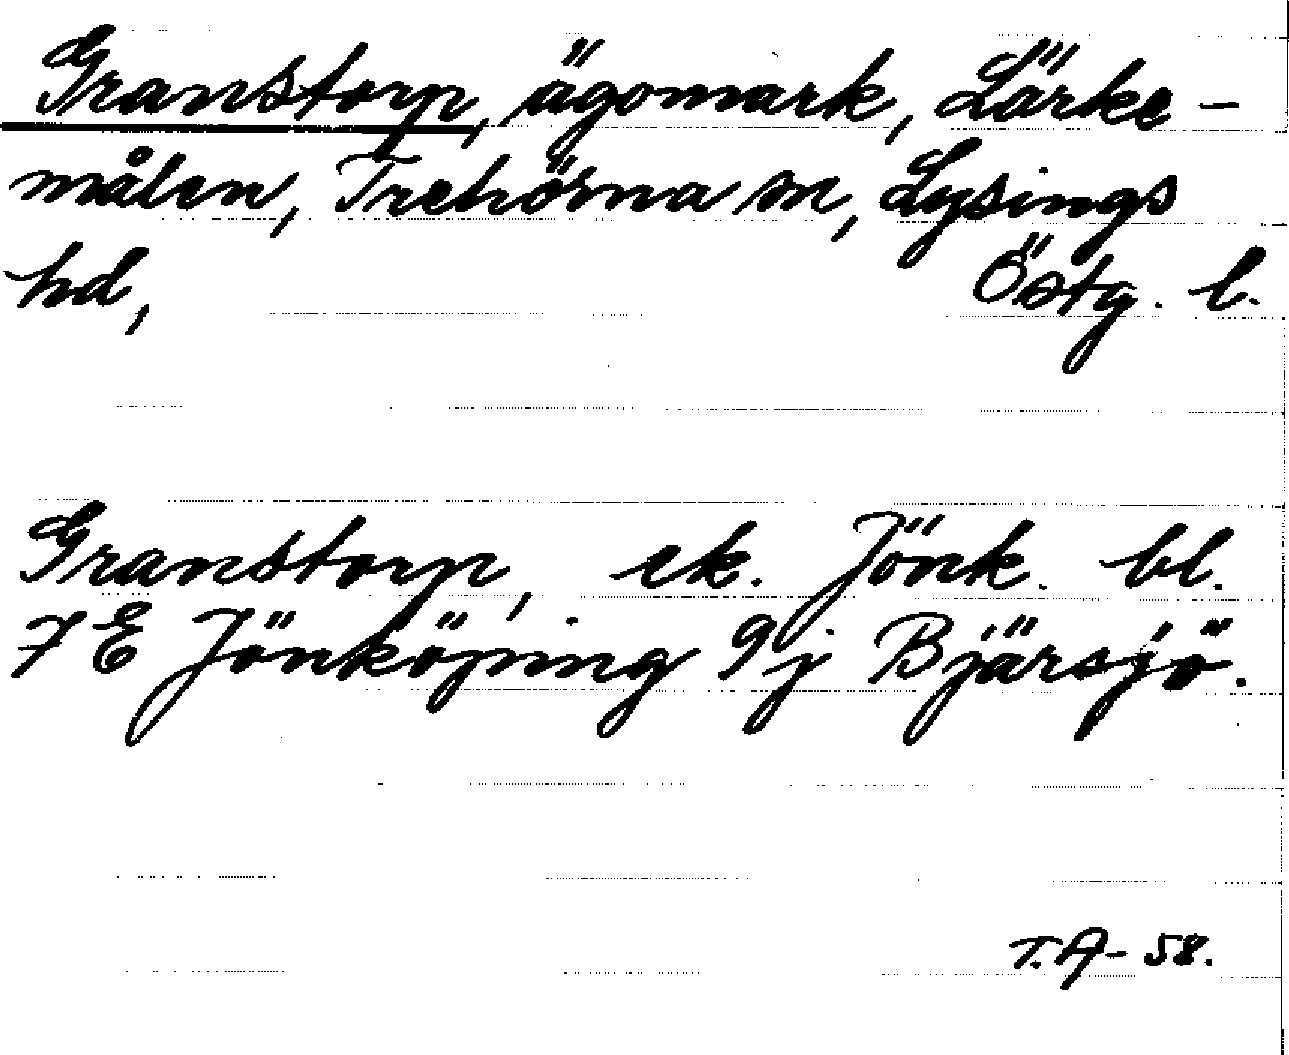 Granstorp, ägomark, Lärke-
målen, Trehörna sn, Lysings
hd, Östg. l.
Granstorp, ek. Jönk. bl.
7 E Jönköping 9 j Bjärsjö.
T.A-58.